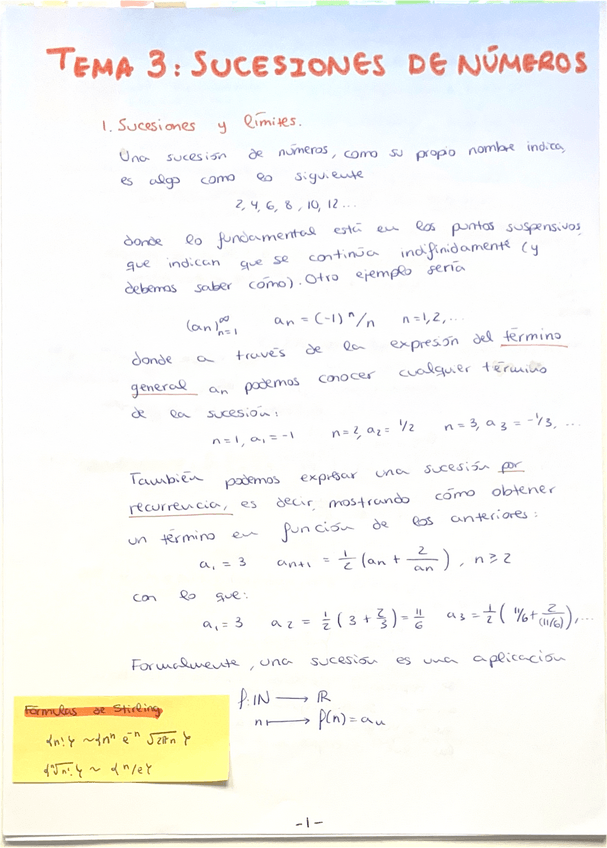 TEMA 3: SUCESIONES DE NÚMEROS
1. Sucesiones y límites.
Una sucesión de números, como su propio nombre indica,
es algo como lo siguiente
2, 4, 6, 8, 10, 12...
donde lo fundamental está en los puntos suspensivos,
que indican que se continúa indifinidamente (y
debemos saber cómo). Otro ejemplo sería
(an)∞n=1 an = (-1)ⁿ/n n=1,2,...
donde a través de la expresión del término
general an podemos conocer cualquier término
de la sucesión:
n=1, a₁ = -1 n=2, a₂ = 1/2 n=3, a₃ = -1/3, ...
También podemos expresar una sucesión por
recurrencia, es decir, mostrando cómo obtener
un término en función de los anteriores:
a₁ = 3 an+1 = 1/2 (an + 2/an), n ≥ 2
con lo que:
a₁ = 3 a₂ = 1/2 (3 + 2/3) = 11/6 a₃ = 1/2 (11/6 + 2/(11/6)), ...
Formalmente, una sucesión es una aplicación
f: ℕ → ℝ
n ↦ f(n) = an
Fórmulas de Stirling
{n!} ~ {nⁿ e⁻ⁿ √2πn}
{ⁿ√n!} ~ {n/e}
-1-